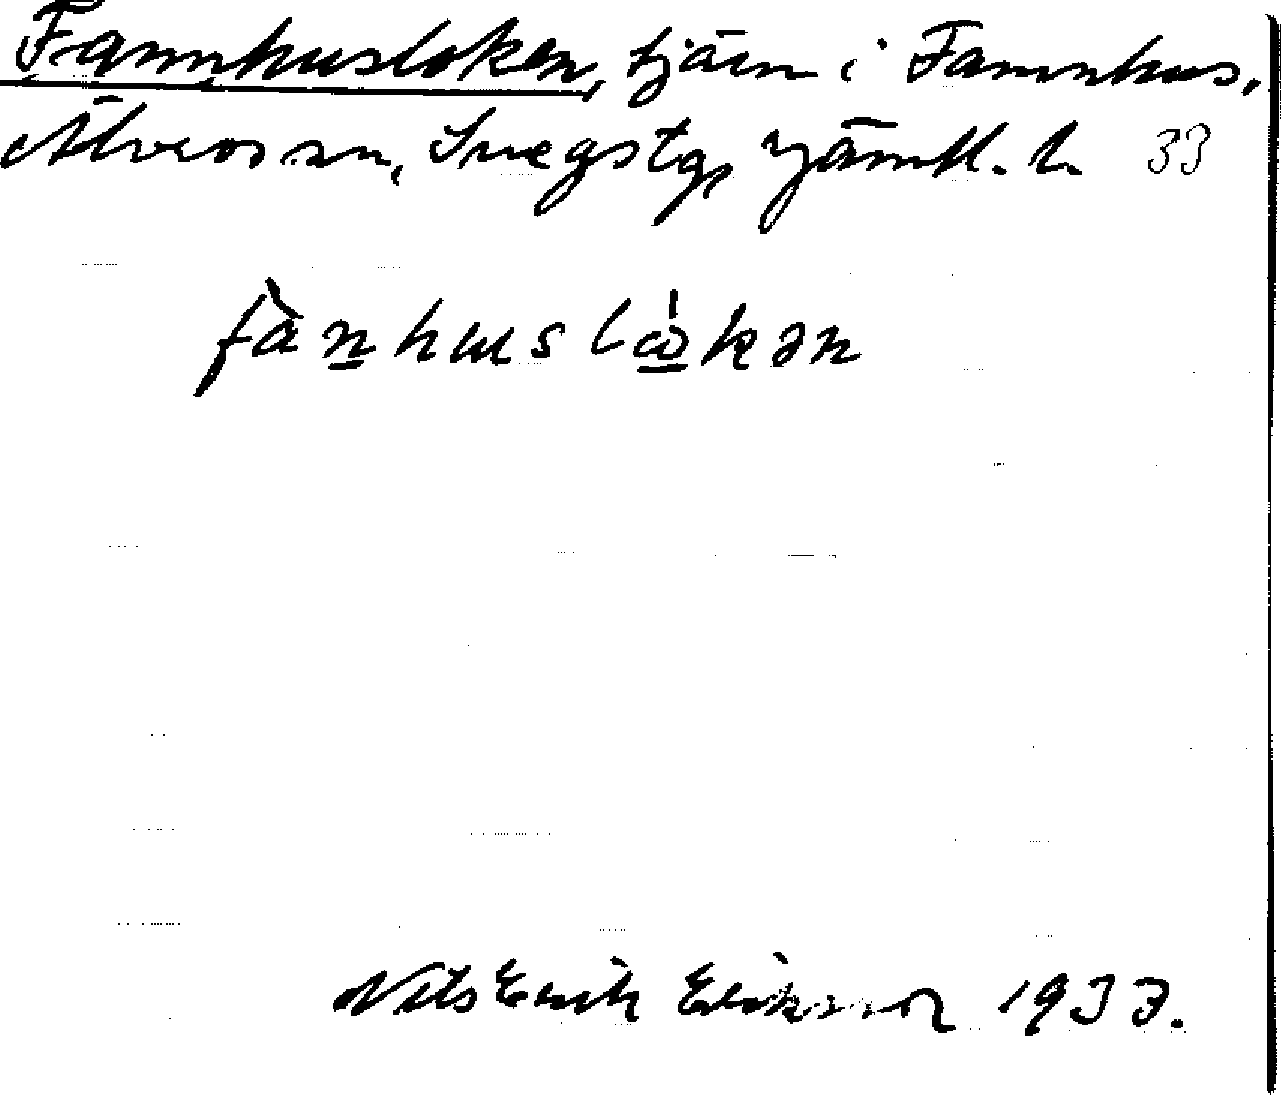 Fannhusloken, tjärn i Fannhus,
Älvros sn, Svegs tg, Jämtl. l. 33
fànhuslɷ̀kən
Nils Erik Eriksson 1933.